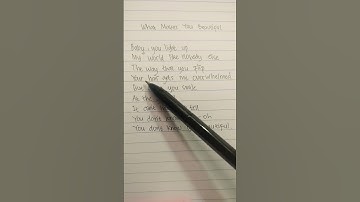 What Makes You Beautiful
Baby you light up
My world like nobody else
The way that you flip
Your hair gets me overwhelmed
you smile
As the
It ain't
You don't oh
You don't beautiful